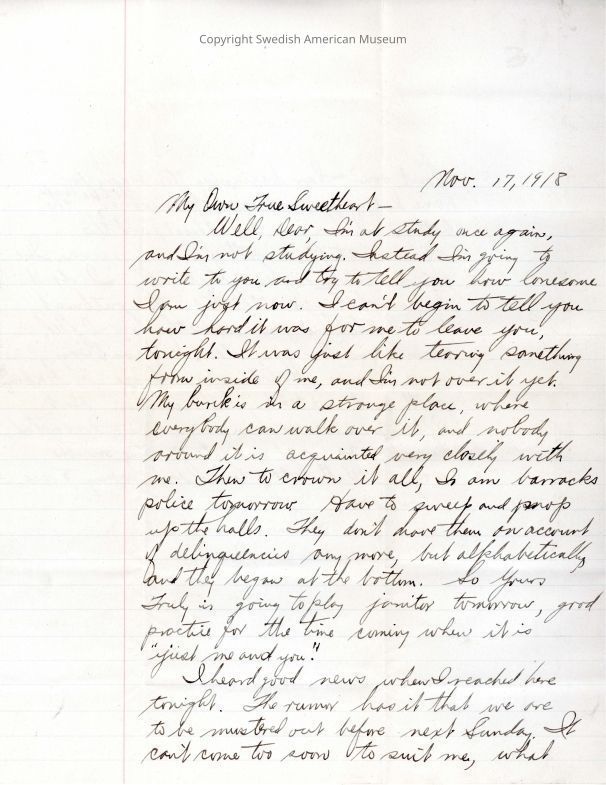 Copyright Swedish American Museum
Nov. 17, 1918
My Own True Sweetheart—
Well, Dear, I'm at study once again,
and I'm not studying. Instead I'm going to
write to you and try to tell you how lonesome
I am just now. I can't begin to tell you
how hard it was for me to leave you,
tonight. It was just like tearing something
from inside of me, and I'm not over it yet.
My bunk is in a strange place, where
everybody can walk over it, and nobody
around it is acquainted very closely with
me. Then to crown it all, I am barracks
police tomorrow. Have to sweep and mop
up the halls. They don't have them on account
of delinquencies any more, but alphabetically,
and they began at the bottom. So Yours
Truly is going to play janitor tomorrow, good
practice for the time coming when it is
"just me and you."
I heard good news when I reached here
tonight. The rumor has it that we are
to be mustered out before next Sunday. It
can't come too soon to suit me, what